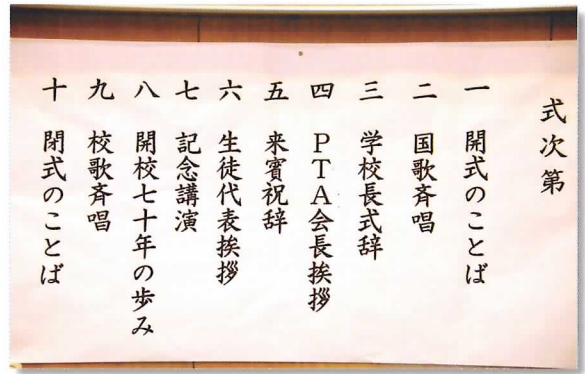 式次第
一 開式のことば
二 国歌斉唱
三 学校長式辞
四 PTA会長挨拶
五 来賓祝辞
六 生徒代表挨拶
七 記念講演
八 開校七十年の歩み
九 校歌斉唱
十 閉式のことば